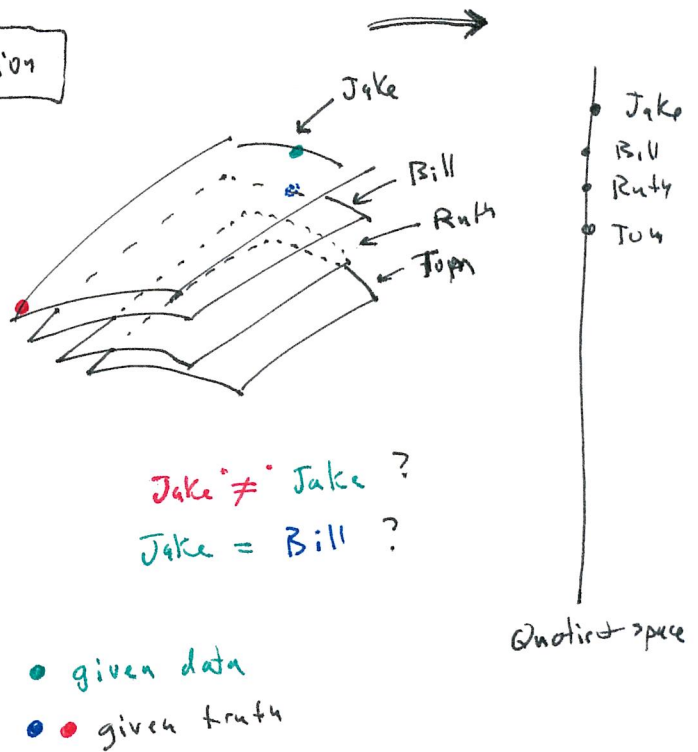 Jake
Bill
Ruth
Tom
Jake
Bill
Ruth
Tom
Jake ≠ Jake ?
Jake = Bill ?
Quotient space
given data
given truth